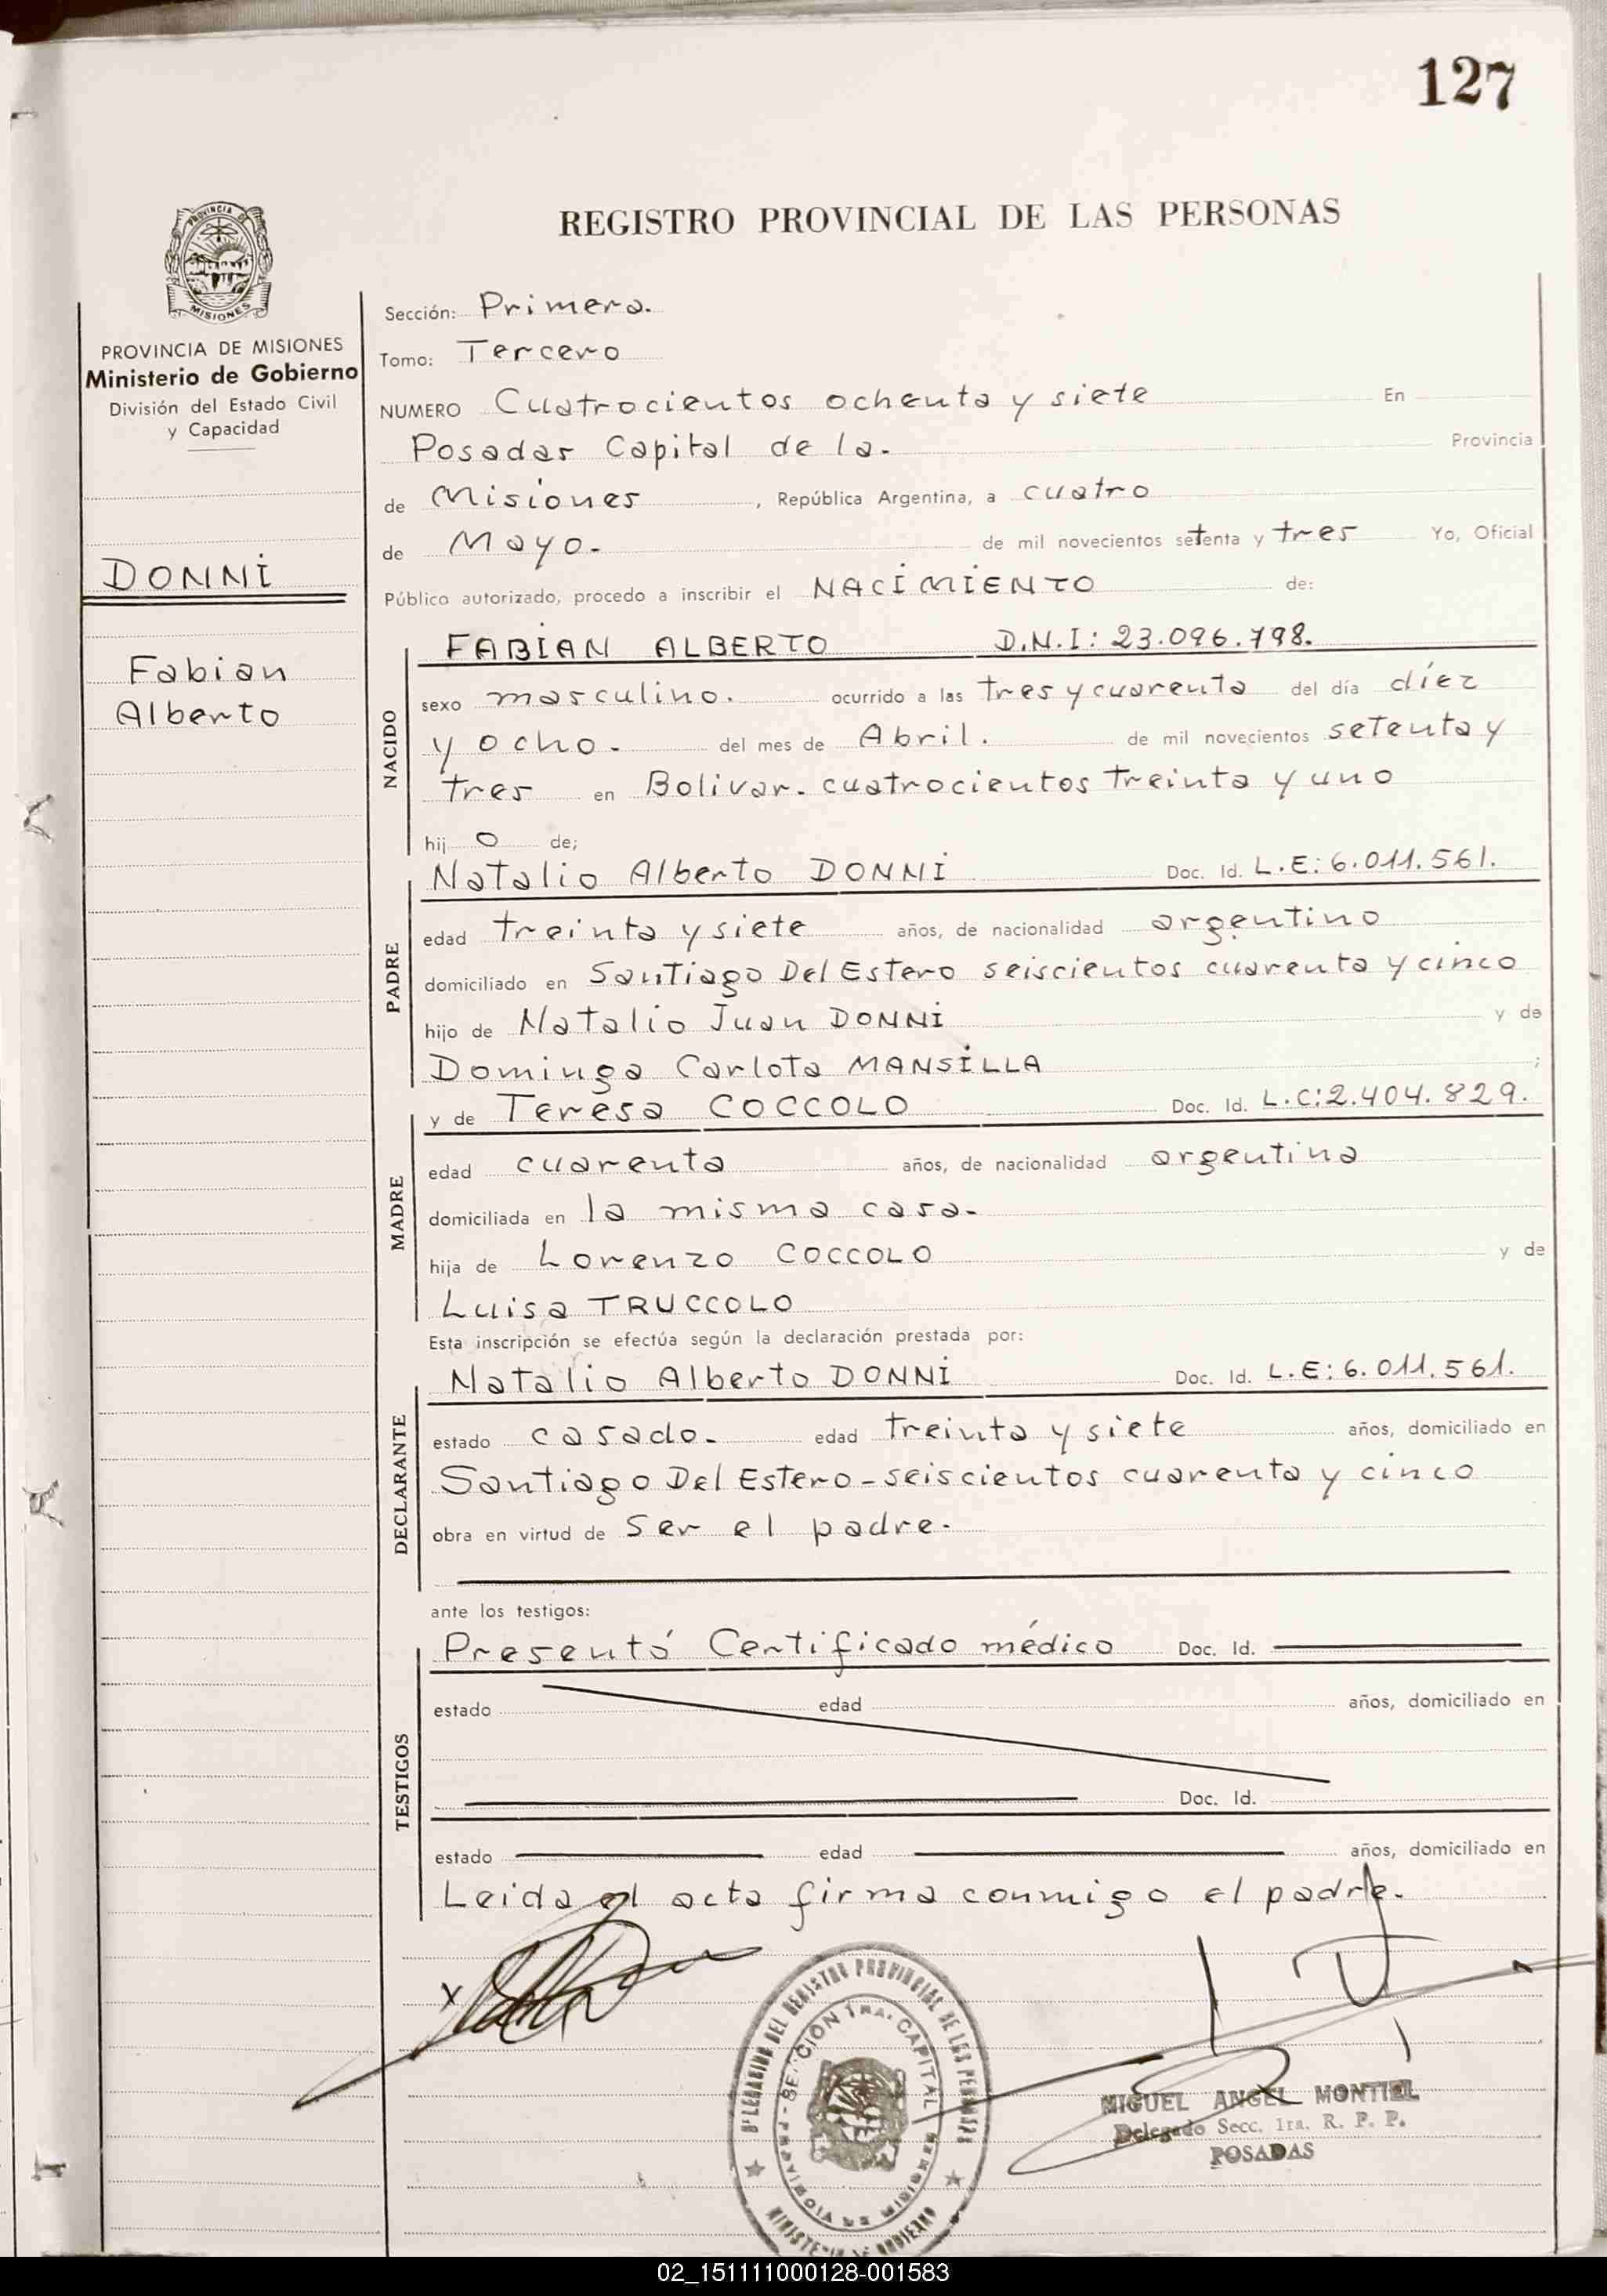 127
REGISTRO PROVINCIAL DE LAS PERSONAS
PROVINCIA DE MISIONES
PROVINCIA DE MISIONES
Ministerio de Gobierno
División del Estado Civil
y Capacidad
DONNI
Fabian
Alberto
Sección: Primera.
Tomo: Tercero
NUMERO Cuatrocientos ochenta y siete En
Posadas Capital de la. Provincia
de Misiones, República Argentina, a cuatro
de Mayo. de mil novecientos setenta y tres Yo, Oficial
Público autorizado, procedo a inscribir el NACIMIENTO de:
NACIDO
FABIAN ALBERTO D.N.I: 23.096.798.
sexo masculino. ocurrido a las tres y cuarenta del día díez
y ocho. del mes de Abril. de mil novecientos setenta y
tres en Bolivar. cuatrocientos treinta y uno
hij o de;
PADRE
Natalio Alberto DONNI Doc. Id. L.E: 6.011.561.
edad treinta y siete años, de nacionalidad argentino
domiciliado en Santiago Del Estero seiscientos cuarenta y cinco
hijo de Natalio Juan DONNI y de
Dominga Carlota MANSILLA ;
MADRE
y de Teresa COCCOLO Doc. Id. L.C: 2.404.829.
edad cuarenta años, de nacionalidad argentina
domiciliada en la misma casa.
hija de Lorenzo COCCOLO y de
Luisa TRUCCOLO
Esta inscripción se efectúa según la declaración prestada por:
DECLARANTE
Natalio Alberto DONNI Doc. Id. L.E: 6.011.561.
estado casado. edad treinta y siete años, domiciliado en
Santiago Del Estero-seiscientos cuarenta y cinco
obra en virtud de Ser el padre.
ante los testigos:
TESTIGOS
Presentó Certificado médico Doc. Id.
estado edad años, domiciliado en
Doc. Id.
estado edad años, domiciliado en
Leida el acta firma conmigo el padre.
X
DELEGACION DEL REGISTRO PROVINCIAL DE LAS PERSONAS
SECCION 1RA. CAPITAL
PROVINCIA DE MISIONES
MINISTERIO DE GOBIERNO
MIGUEL ANGEL MONTIEL
Delegado Secc. 1ra. R. P. P.
POSADAS
02_151111000128-001583